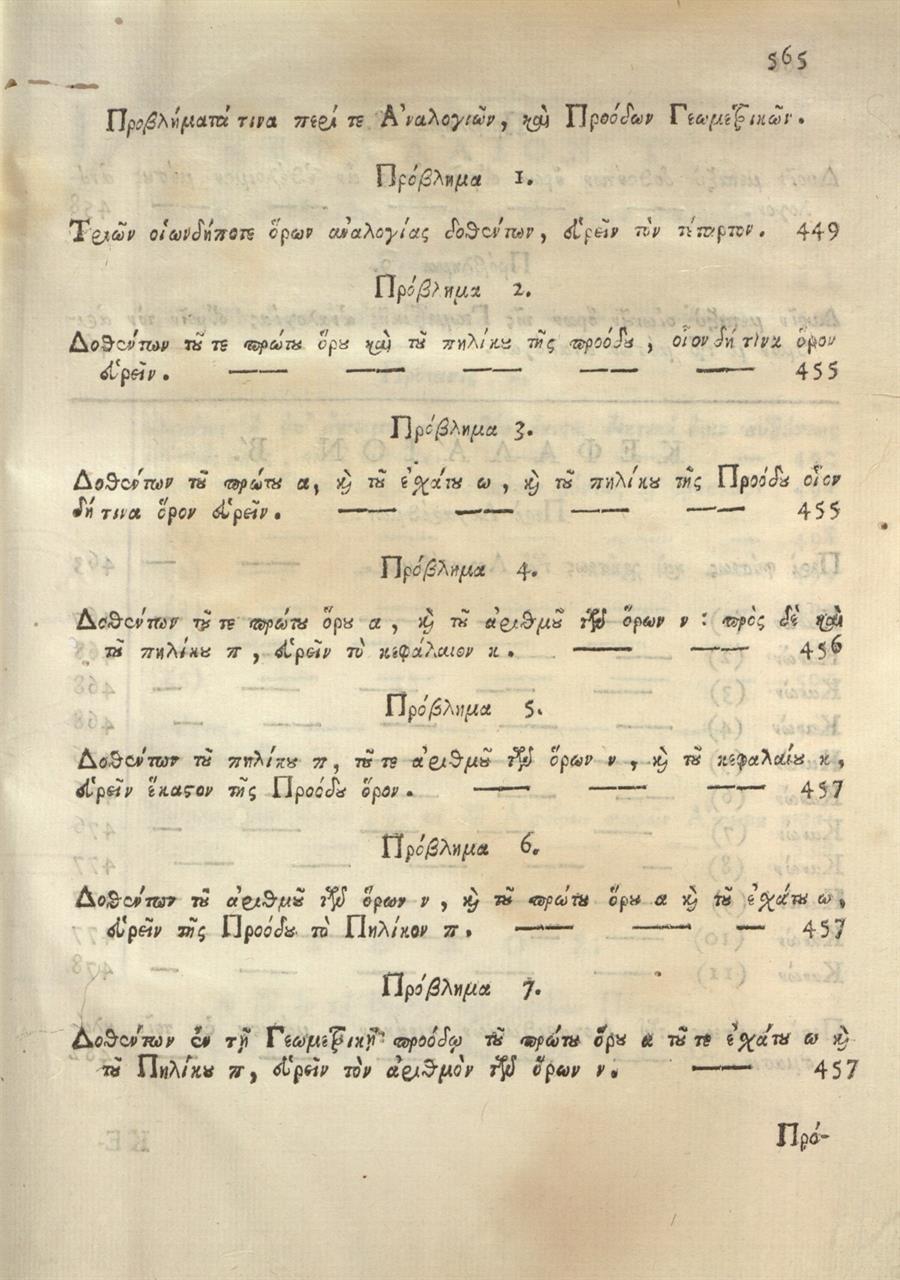 565
Προβλήματά τινα περί τε Ἀναλογιῶν, καὶ Προόδων Γεωμετρικῶν.
Πρόβλημα 1.
Τριῶν οἱωνδήποτε ὅρων ἀναλογίας δοθέντων, εὑρεῖν τὸν τέταρτον. 449
Πρόβλημα 2.
Δοθέντων τοῦ τε πρώτου ὅρου καὶ τοῦ πηλίκου τῆς προόδου, οἷον δή τινα ὅρον
εὑρεῖν. — — — — — 455
Πρόβλημα 3.
Δοθέντων τοῦ πρώτου α, καὶ τοῦ ἐσχάτου ω, καὶ τοῦ πηλίκου τῆς Προόδου οἷον
δή τινα ὅρον εὑρεῖν. — — — — 455
Πρόβλημα 4.
Δοθέντων τοῦ τε πρώτου ὅρου α, καὶ τοῦ ἀριθμοῦ τῶν ὅρων ν: πρὸς δὲ καὶ
τοῦ πηλίκου π, εὑρεῖν τὸ κεφάλαιον κ. — — 456
Πρόβλημα 5.
Δοθέντων τοῦ πηλίκου π, τοῦ τε ἀριθμοῦ τῶν ὅρων ν, καὶ τοῦ κεφαλαίου κ,
εὑρεῖν ἕκαστον τῆς Προόδου ὅρον. — — — 457
Πρόβλημα 6.
Δοθέντων τοῦ ἀριθμοῦ τῶν ὅρων ν, καὶ τοῦ πρώτου ὅρου α καὶ τοῦ ἐσχάτου ω,
εὑρεῖν τῆς Προόδου τὸ Πηλίκον π. — — — 457
Πρόβλημα 7.
Δοθέντων ἐν τῇ Γεωμετρικῇ προόδῳ τοῦ πρώτου ὅρου α τοῦ τε ἐσχάτου ω καὶ
τοῦ Πηλίκου π, εὑρεῖν τὸν ἀριθμὸν τῶν ὅρων ν. — 457
Πρό-